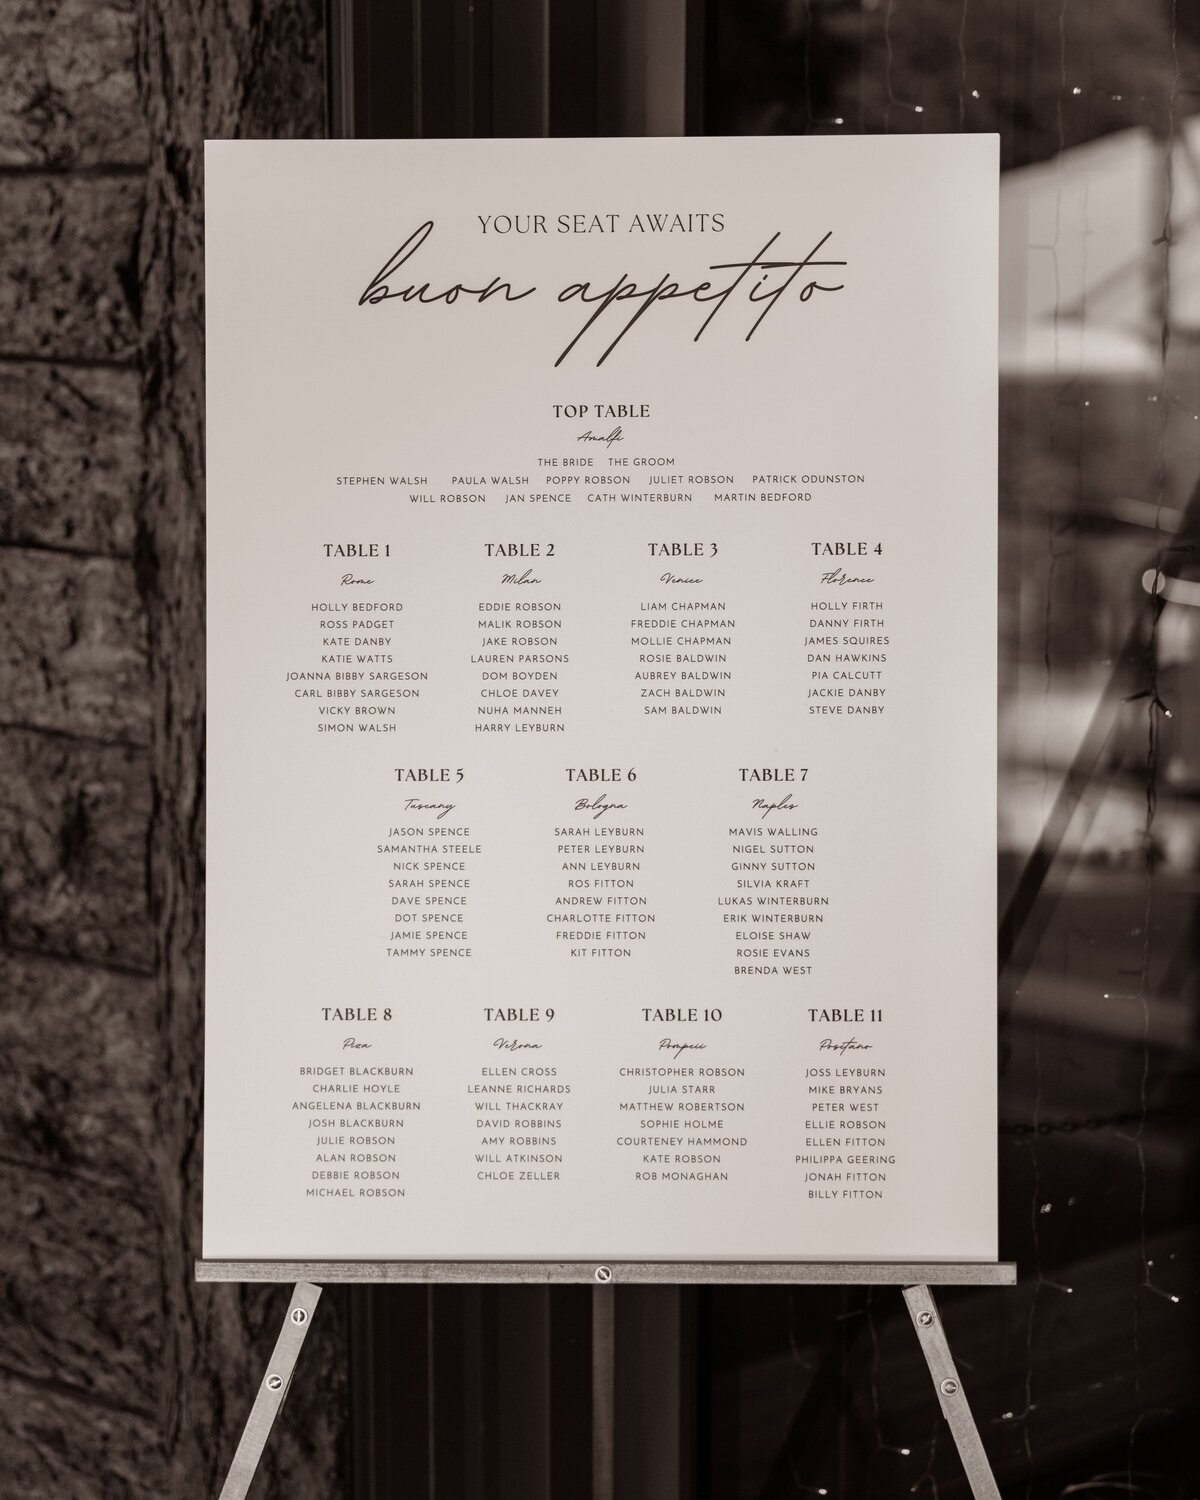 YOUR SEAT AWAITS
buon appetito
TOP TABLE
Amalfi
THE BRIDE THE GROOM
STEPHEN WALSH PAULA WALSH POPPY ROBSON JULIET ROBSON PATRICK ODUNSTON
WILL ROBSON JAN SPENCE CATH WINTERBURN MARTIN BEDFORD
TABLE 1
Rome
HOLLY BEDFORD
ROSS PADGET
KATE DANBY
KATIE WATTS
JOANNA BIBBY SARGESON
CARL BIBBY SARGESON
VICKY BROWN
SIMON WALSH
TABLE 2
Milan
EDDIE ROBSON
MALIK ROBSON
JAKE ROBSON
LAUREN PARSONS
DOM BOYDEN
CHLOE DAVEY
NUHA MANNEH
HARRY LEYBURN
TABLE 3
Venice
LIAM CHAPMAN
FREDDIE CHAPMAN
MOLLIE CHAPMAN
ROSIE BALDWIN
AUBREY BALDWIN
ZACH BALDWIN
SAM BALDWIN
TABLE 4
Florence
HOLLY FIRTH
DANNY FIRTH
JAMES SQUIRES
DAN HAWKINS
PIA CALCUTT
JACKIE DANBY
STEVE DANBY
TABLE 5
Tuscany
JASON SPENCE
SAMANTHA STEELE
NICK SPENCE
SARAH SPENCE
DAVE SPENCE
DOT SPENCE
JAMIE SPENCE
TAMMY SPENCE
TABLE 6
Bologna
SARAH LEYBURN
PETER LEYBURN
ANN LEYBURN
ROS FITTON
ANDREW FITTON
CHARLOTTE FITTON
FREDDIE FITTON
KIT FITTON
TABLE 7
Naples
MAVIS WALLING
NIGEL SUTTON
GINNY SUTTON
SILVIA KRAFT
LUKAS WINTERBURN
ERIK WINTERBURN
ELOISE SHAW
ROSIE EVANS
BRENDA WEST
TABLE 8
Piza
BRIDGET BLACKBURN
CHARLIE HOYLE
ANGELENA BLACKBURN
JOSH BLACKBURN
JULIE ROBSON
ALAN ROBSON
DEBBIE ROBSON
MICHAEL ROBSON
TABLE 9
Verona
ELLEN CROSS
LEANNE RICHARDS
WILL THACKRAY
DAVID ROBBINS
AMY ROBBINS
WILL ATKINSON
CHLOE ZELLER
TABLE 10
Pompeii
CHRISTOPHER ROBSON
JULIA STARR
MATTHEW ROBERTSON
SOPHIE HOLME
COURTENEY HAMMOND
KATE ROBSON
ROB MONAGHAN
TABLE 11
Positano
JOSS LEYBURN
MIKE BRYANS
PETER WEST
ELLIE ROBSON
ELLEN FITTON
PHILIPPA GEERING
JONAH FITTON
BILLY FITTON